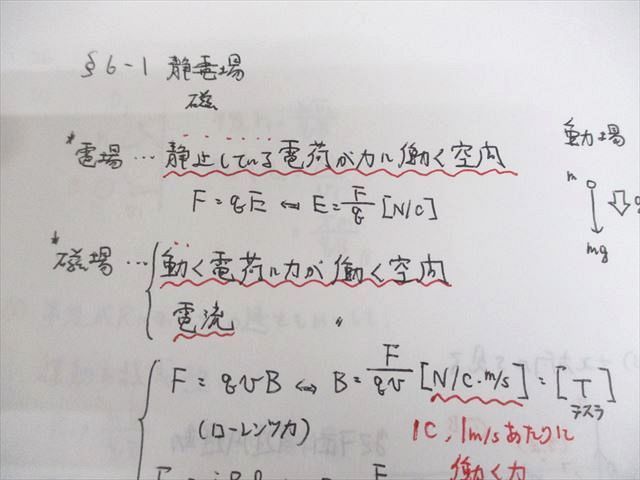 §6-1 静電場
磁
*電場…静止している電荷が力に働く空間
F = qE ↔ E = F/q [N/C]
*磁場…動く電荷に力が働く空間
電流 〃
F = qvB ↔ B = F/qv [N/C・m/s] = [T]
テスラ
(ローレンツ力)
1C, 1m/sあたりに
働く力
重力場
m
mg